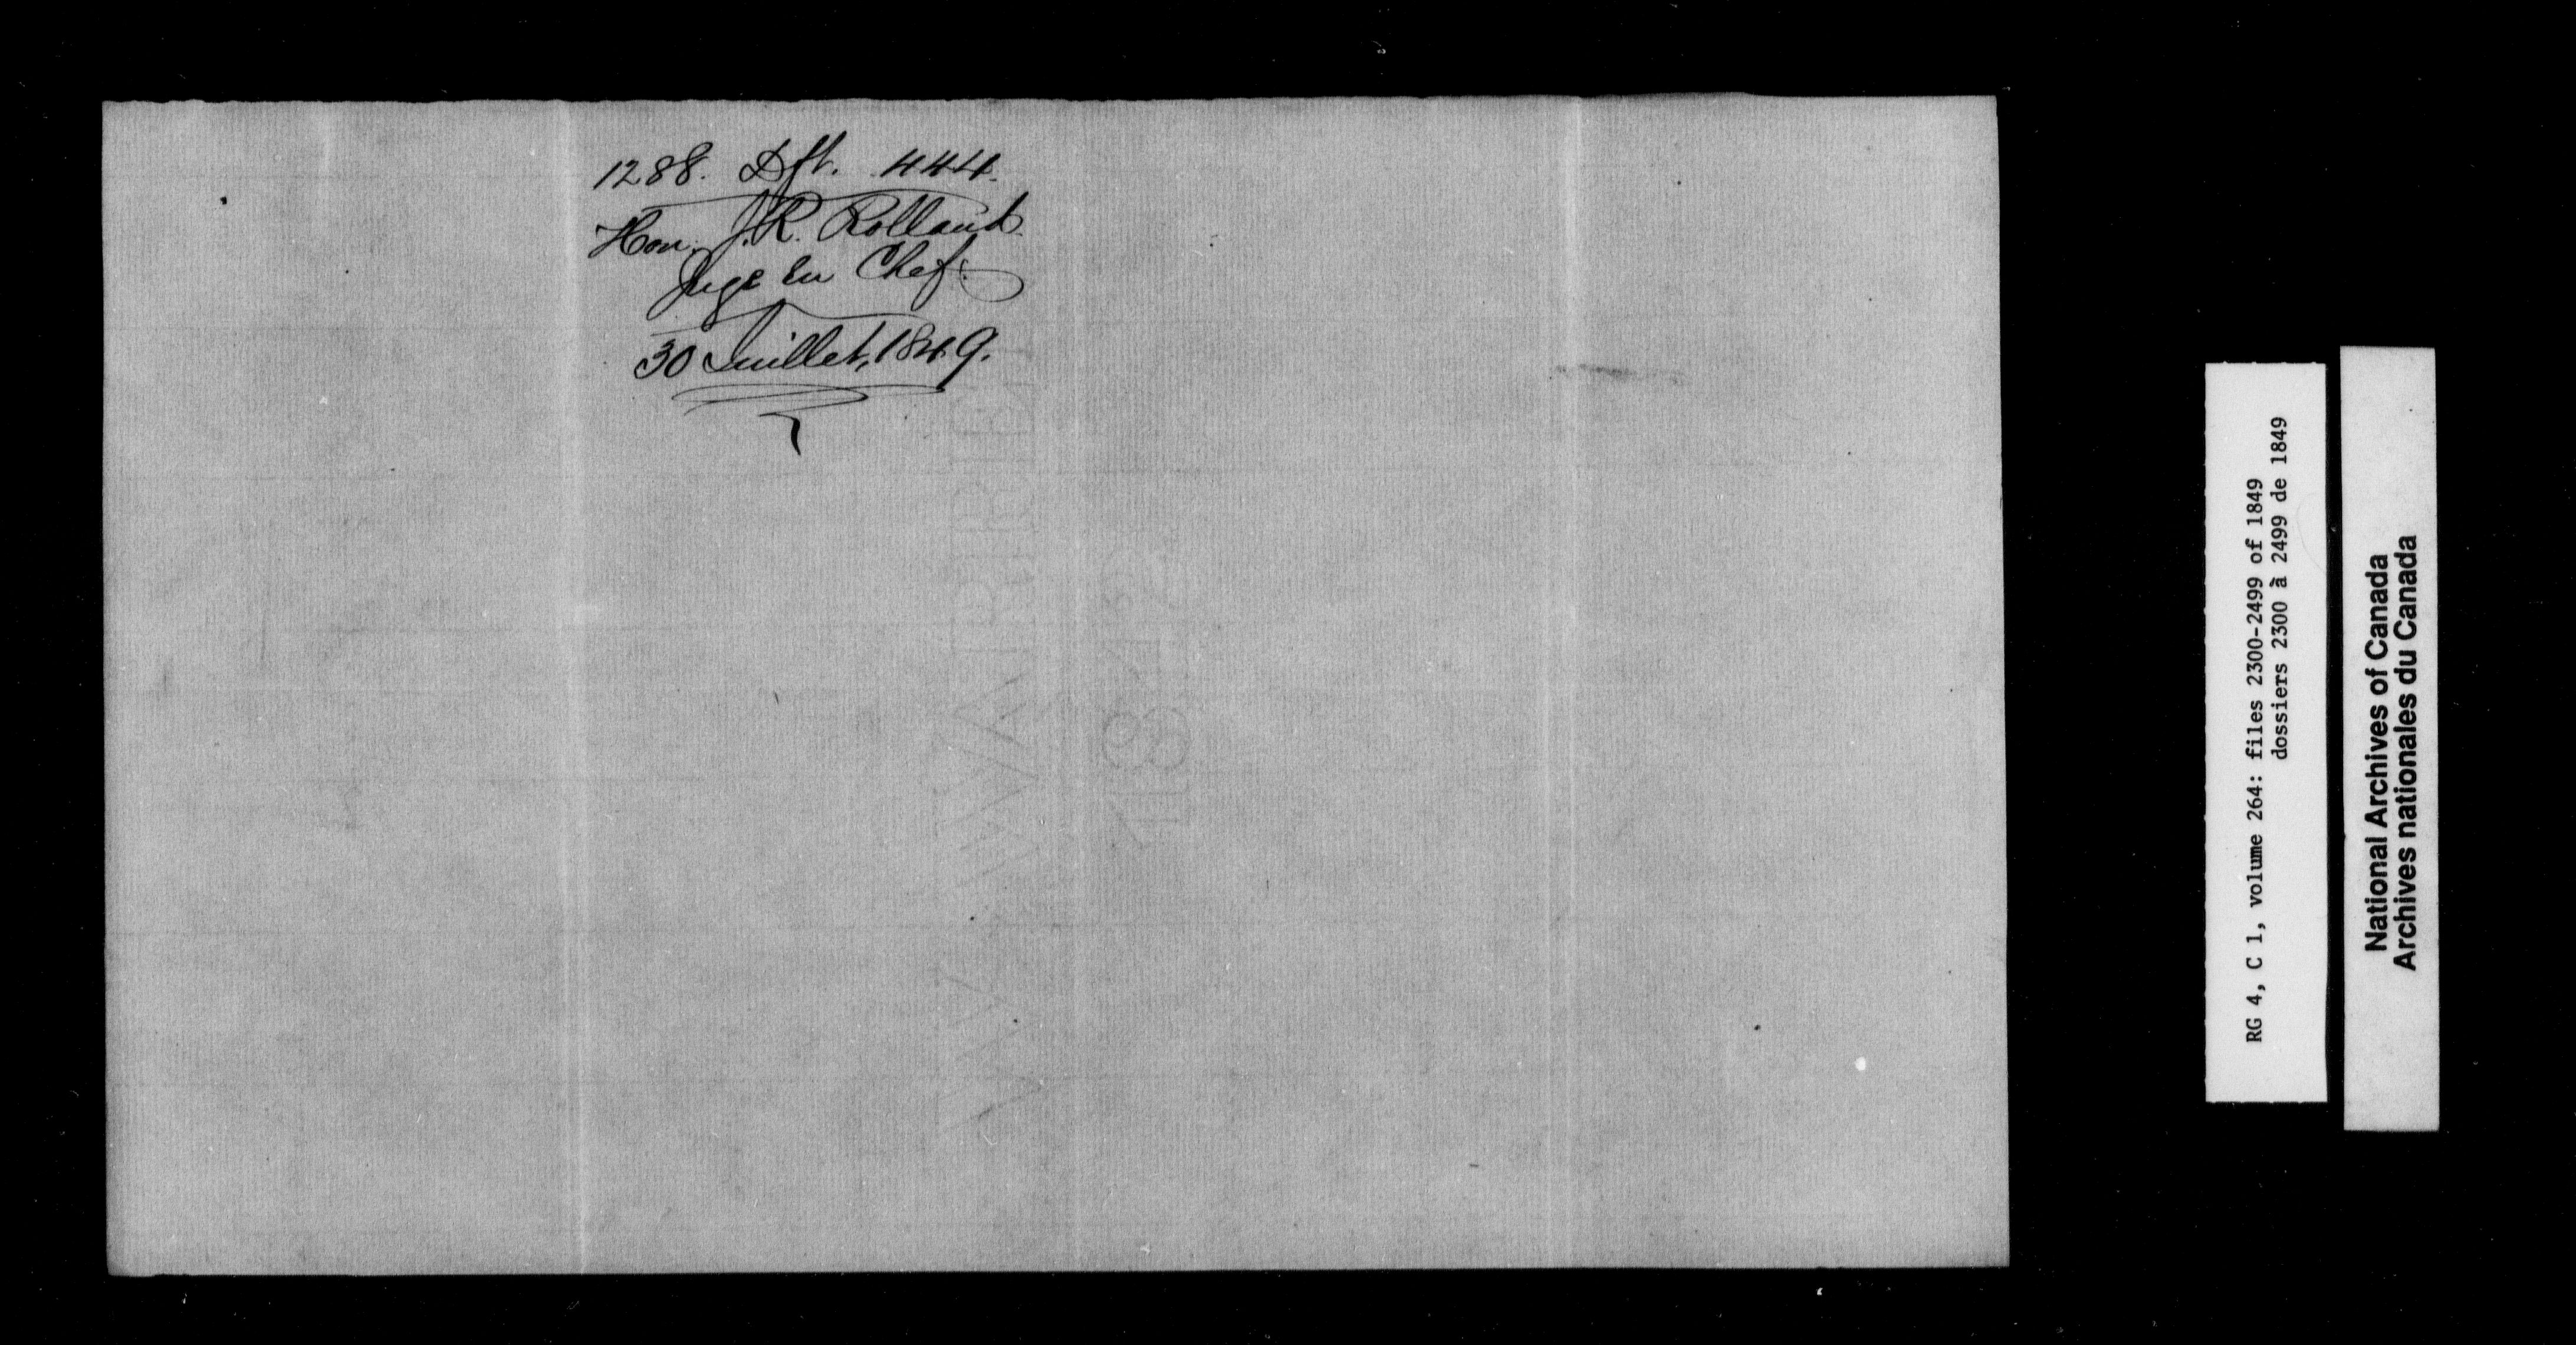 1288. Dft. 444.
Hon. J. R. Rolland
Juge en Chef.
30 Juillet, 1849.
RG 4, C 1, volume 264: files 2300-2499 of 1849
dossiers 2300 à 2499 de 1849
National Archives of Canada
Archives nationales du Canada